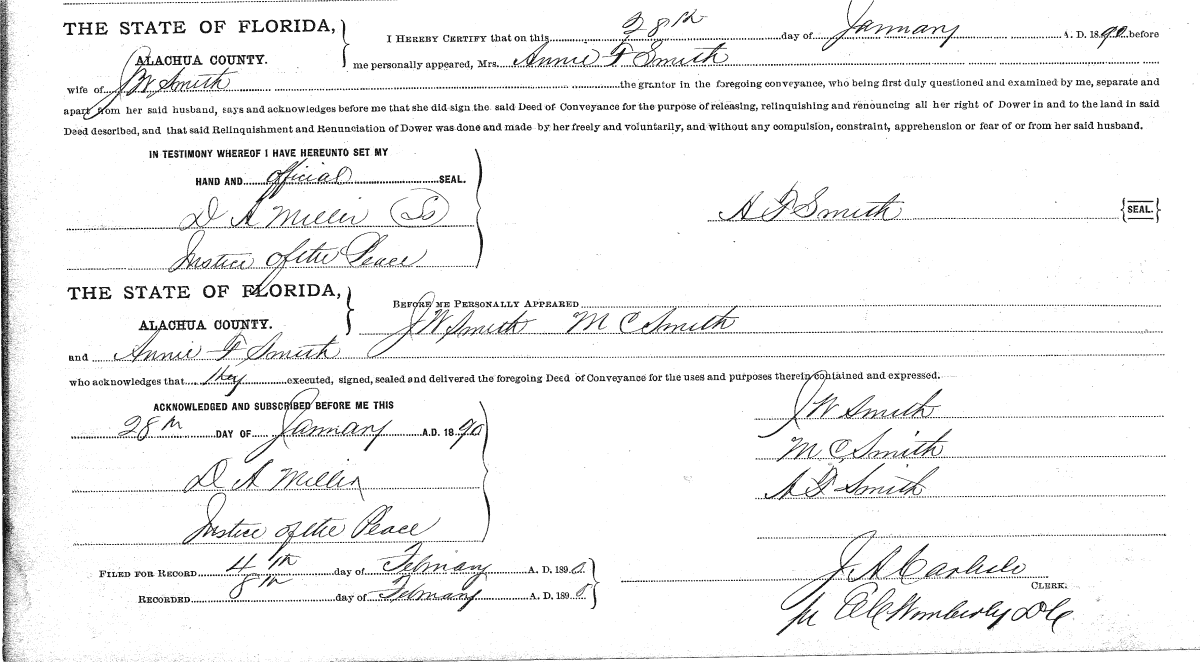 THE STATE OF FLORIDA,
ALACHUA COUNTY.
I HEREBY CERTIFY that on this 28th day of January A. D. 1890 before
me personally appeared, Mrs. Annie F Smith
wife of J W Smith the grantor in the foregoing conveyance, who being first duly questioned and examined by me, separate and
apart from her said husband, says and acknowledges before me that she did sign the said Deed of Conveyance for the purpose of releasing, relinquishing and renouncing all her right of Dower in and to the land in said
Deed described, and that said Relinquishment and Renunciation of Dower was done and made by her freely and voluntarily, and without any compulsion, constraint, apprehension or fear of or from her said husband.
IN TESTIMONY WHEREOF I HAVE HEREUNTO SET MY
HAND AND official SEAL.
D A Miller (LS)
A F Smith {SEAL.}
Justice of the Peace
THE STATE OF FLORIDA,
ALACHUA COUNTY.
BEFORE ME PERSONALLY APPEARED
J W Smith M C Smith
and Annie F Smith
who acknowledges that they executed, signed, sealed and delivered the foregoing Deed of Conveyance for the uses and purposes therein contained and expressed.
ACKNOWLEDGED AND SUBSCRIBED BEFORE ME THIS
28th DAY OF January A.D. 1890
D A Miller
Justice of the Peace
J W Smith
M C Smith
A F Smith
FILED FOR RECORD 4th day of February A. D. 1890
RECORDED 8th day of February A. D. 1890
J A Carlisle
CLERK.
pr E C Wimberly D C